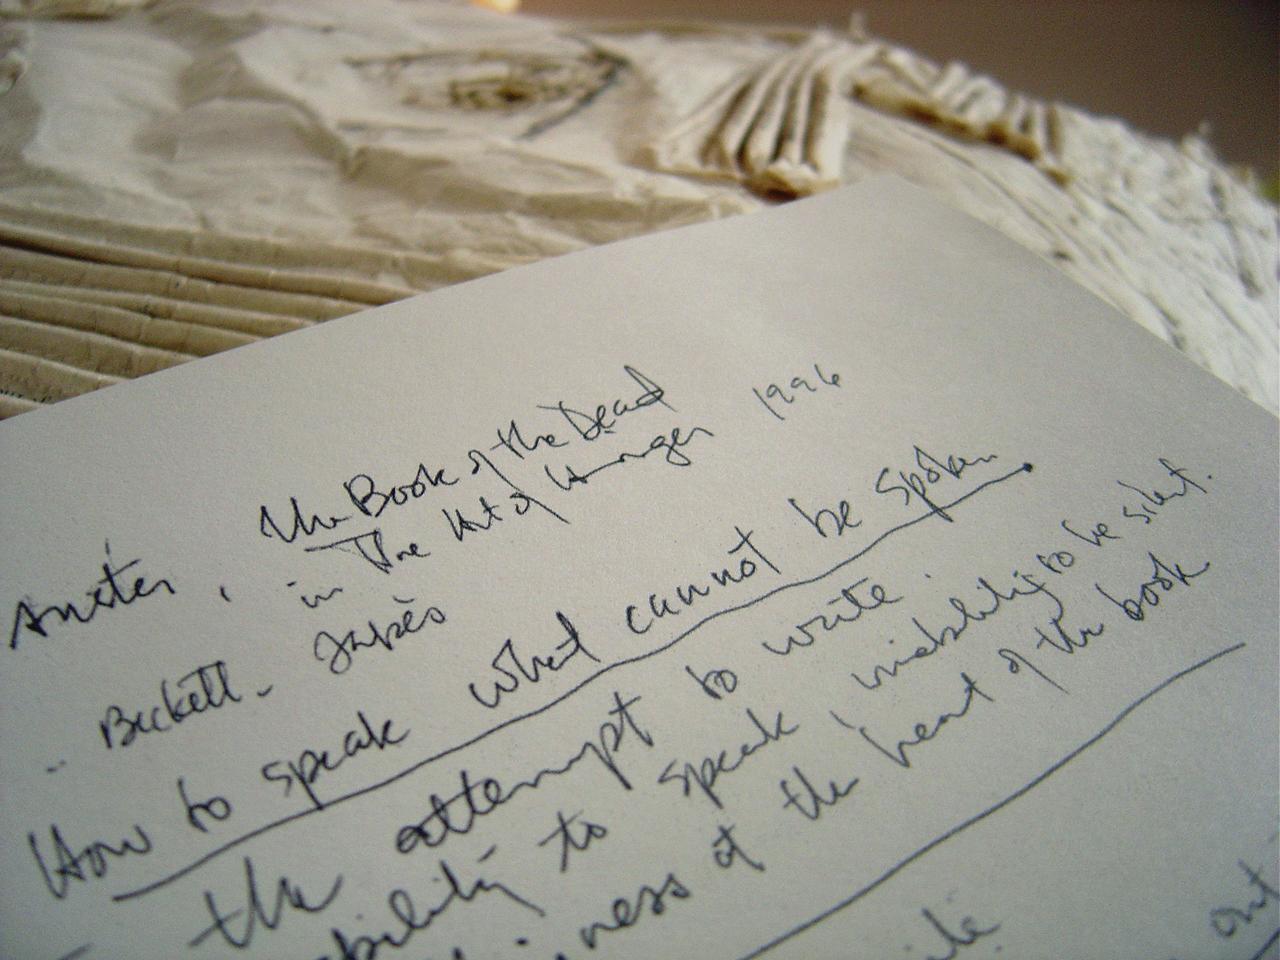 Auster, The Book of the Dead
in The Art of Hunger 1996
Beckett - Jabès
How to speak what cannot be spoken
the attempt to write.
ability to speak, inability to be silent.
at the heart of the book
out